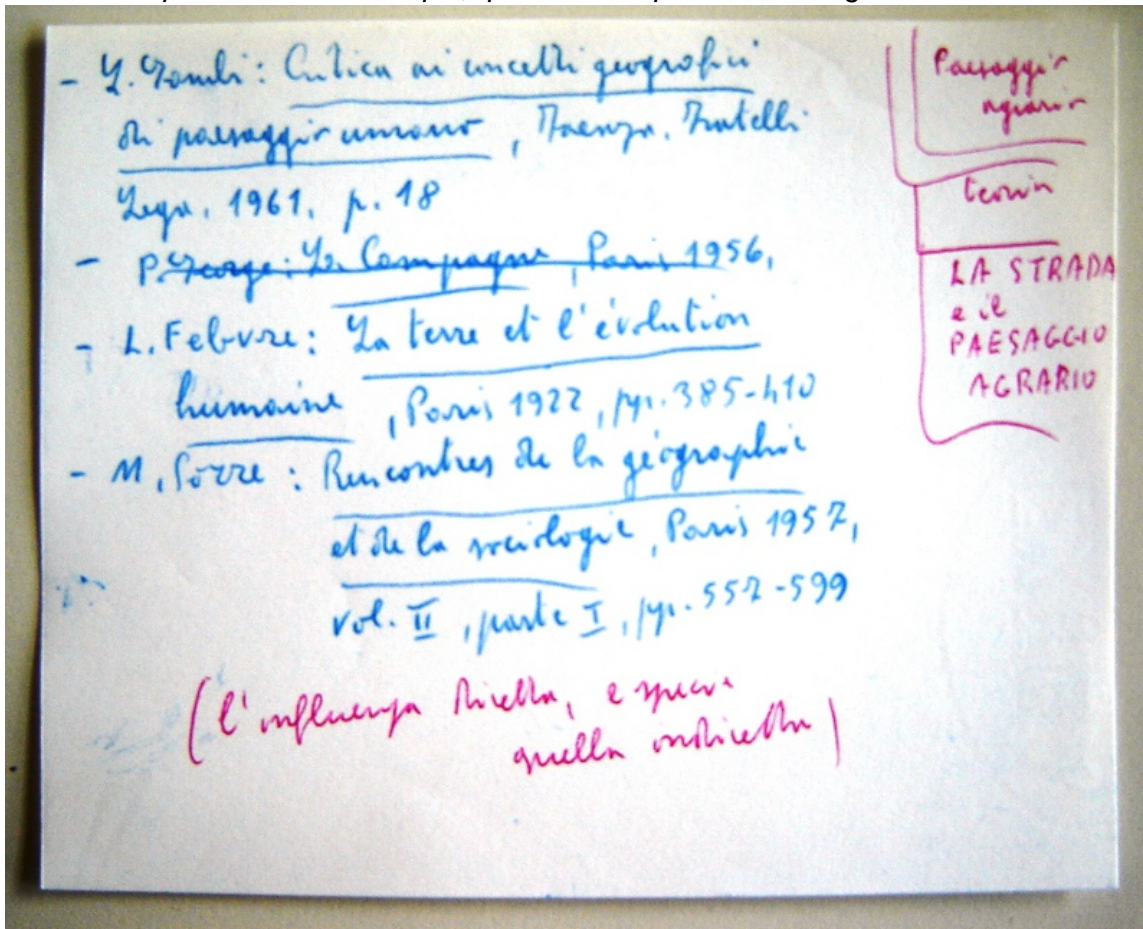 - L. Gambi: Critica ai concetti geografici
di paesaggio umano, Faenza, Fratelli
Lega, 1961, p. 18
- P. George: La Campagne, Paris 1956,
- L. Febvre: La terre et l'évolution
humaine, Paris 1922, pp. 385-410
- M. Sorre: Rencontres de la géographie
et de la sociologie, Paris 1957,
vol. II, parte I, pp. 557-599
(l'influenza diretta, e spesso
quella indiretta)
Paesaggio
agrario
teoria
LA STRADA
e il
PAESAGGIO
AGRARIO